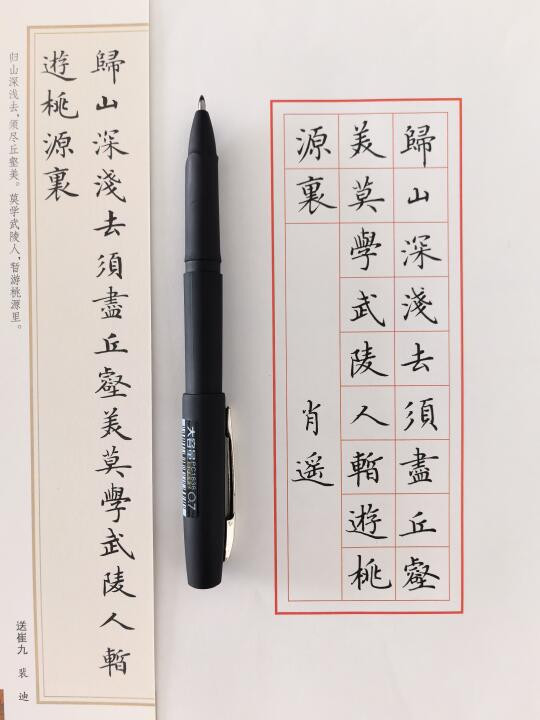 歸山深淺去須盡丘壑美莫學武陵人暫
遊桃源裏
归山深浅去，须尽丘壑美。莫学武陵人，暂游桃源里。
送崔九 裴迪
大容量
0.7
歸山深淺去須盡丘壑
美莫學武陵人暫遊桃
源裏
肖遥